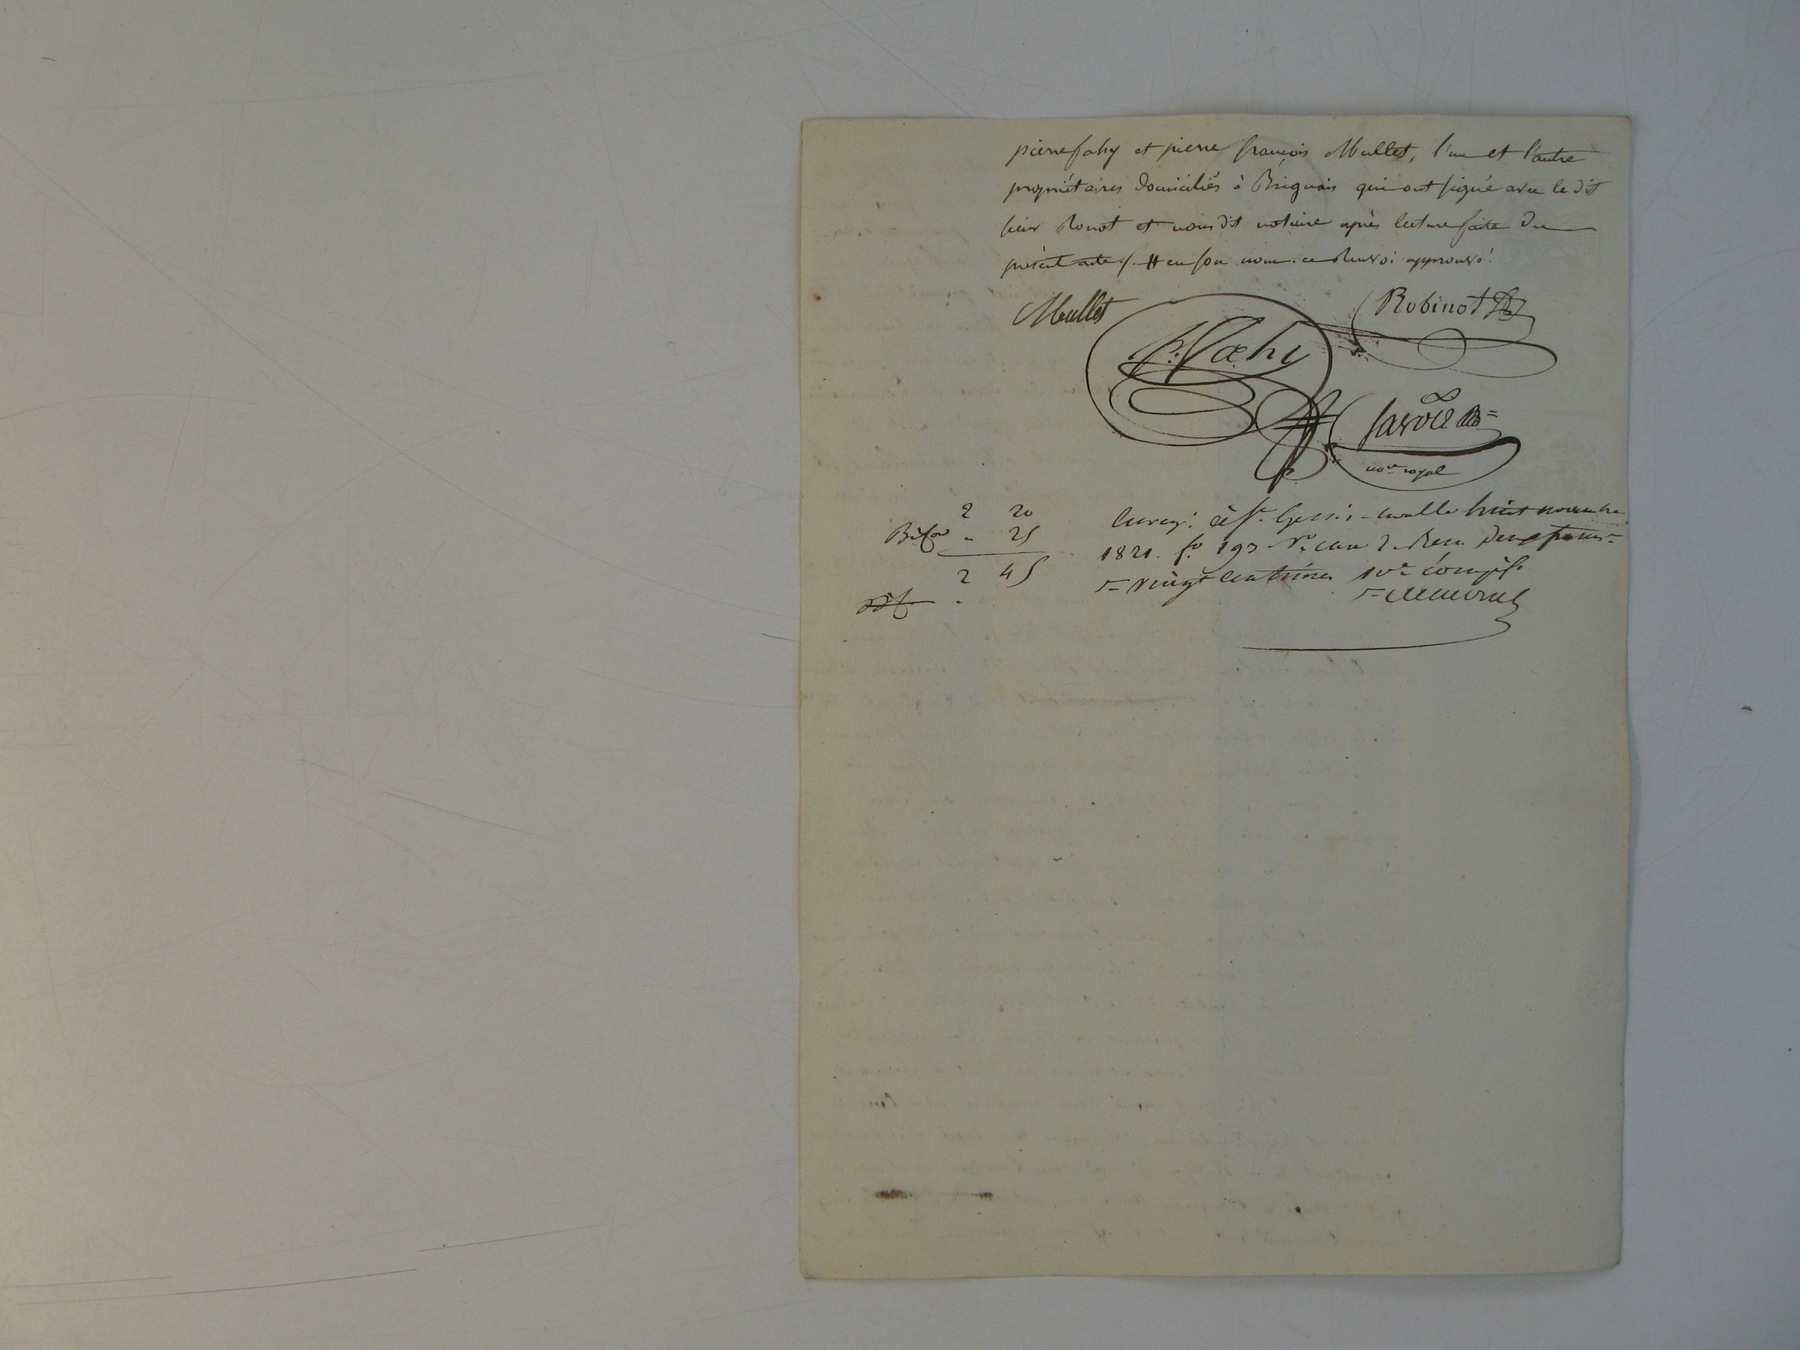 pierre fahy et pierre françois Mullet, l'un et l'autre
propriétaires domiciliés à Brignais qui ont signé avec le dit
sieur Ronot et nous dit notaire après lecture faite du
présent acte /. # en son nom. ce Renvoi approuvé.
Mullet
Robinot
P. Fæhy
not.re royal
2 20
25
2 45
Enreg. à St. Genis-Lavalle huit novembre
1821. fo 193 Vo case 2. Reçu deux francs
vingt centimes 10e compris